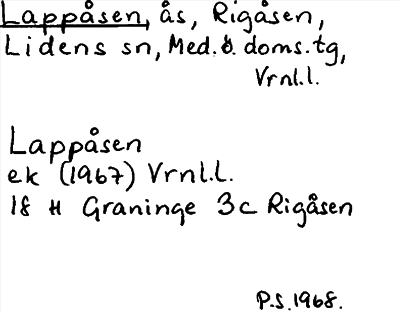 Lappåsen, ås, Rigåsen,
Lidens sn, Med. ö. doms.tg,
Vrnl.l.
Lappåsen
ek (1967) Vrnl.l.
18 H Graninge 3c Rigåsen
P.S. 1968.